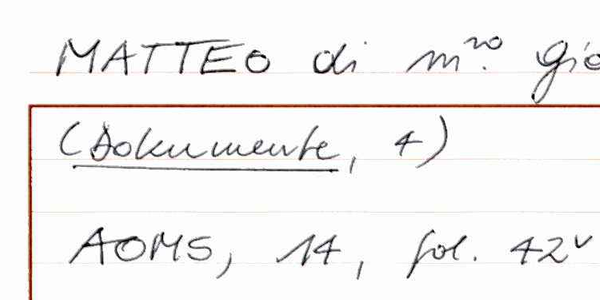 MATTEO di m.ro Gio
(Dokumente, 4)
AOMS, 14, fol. 42v